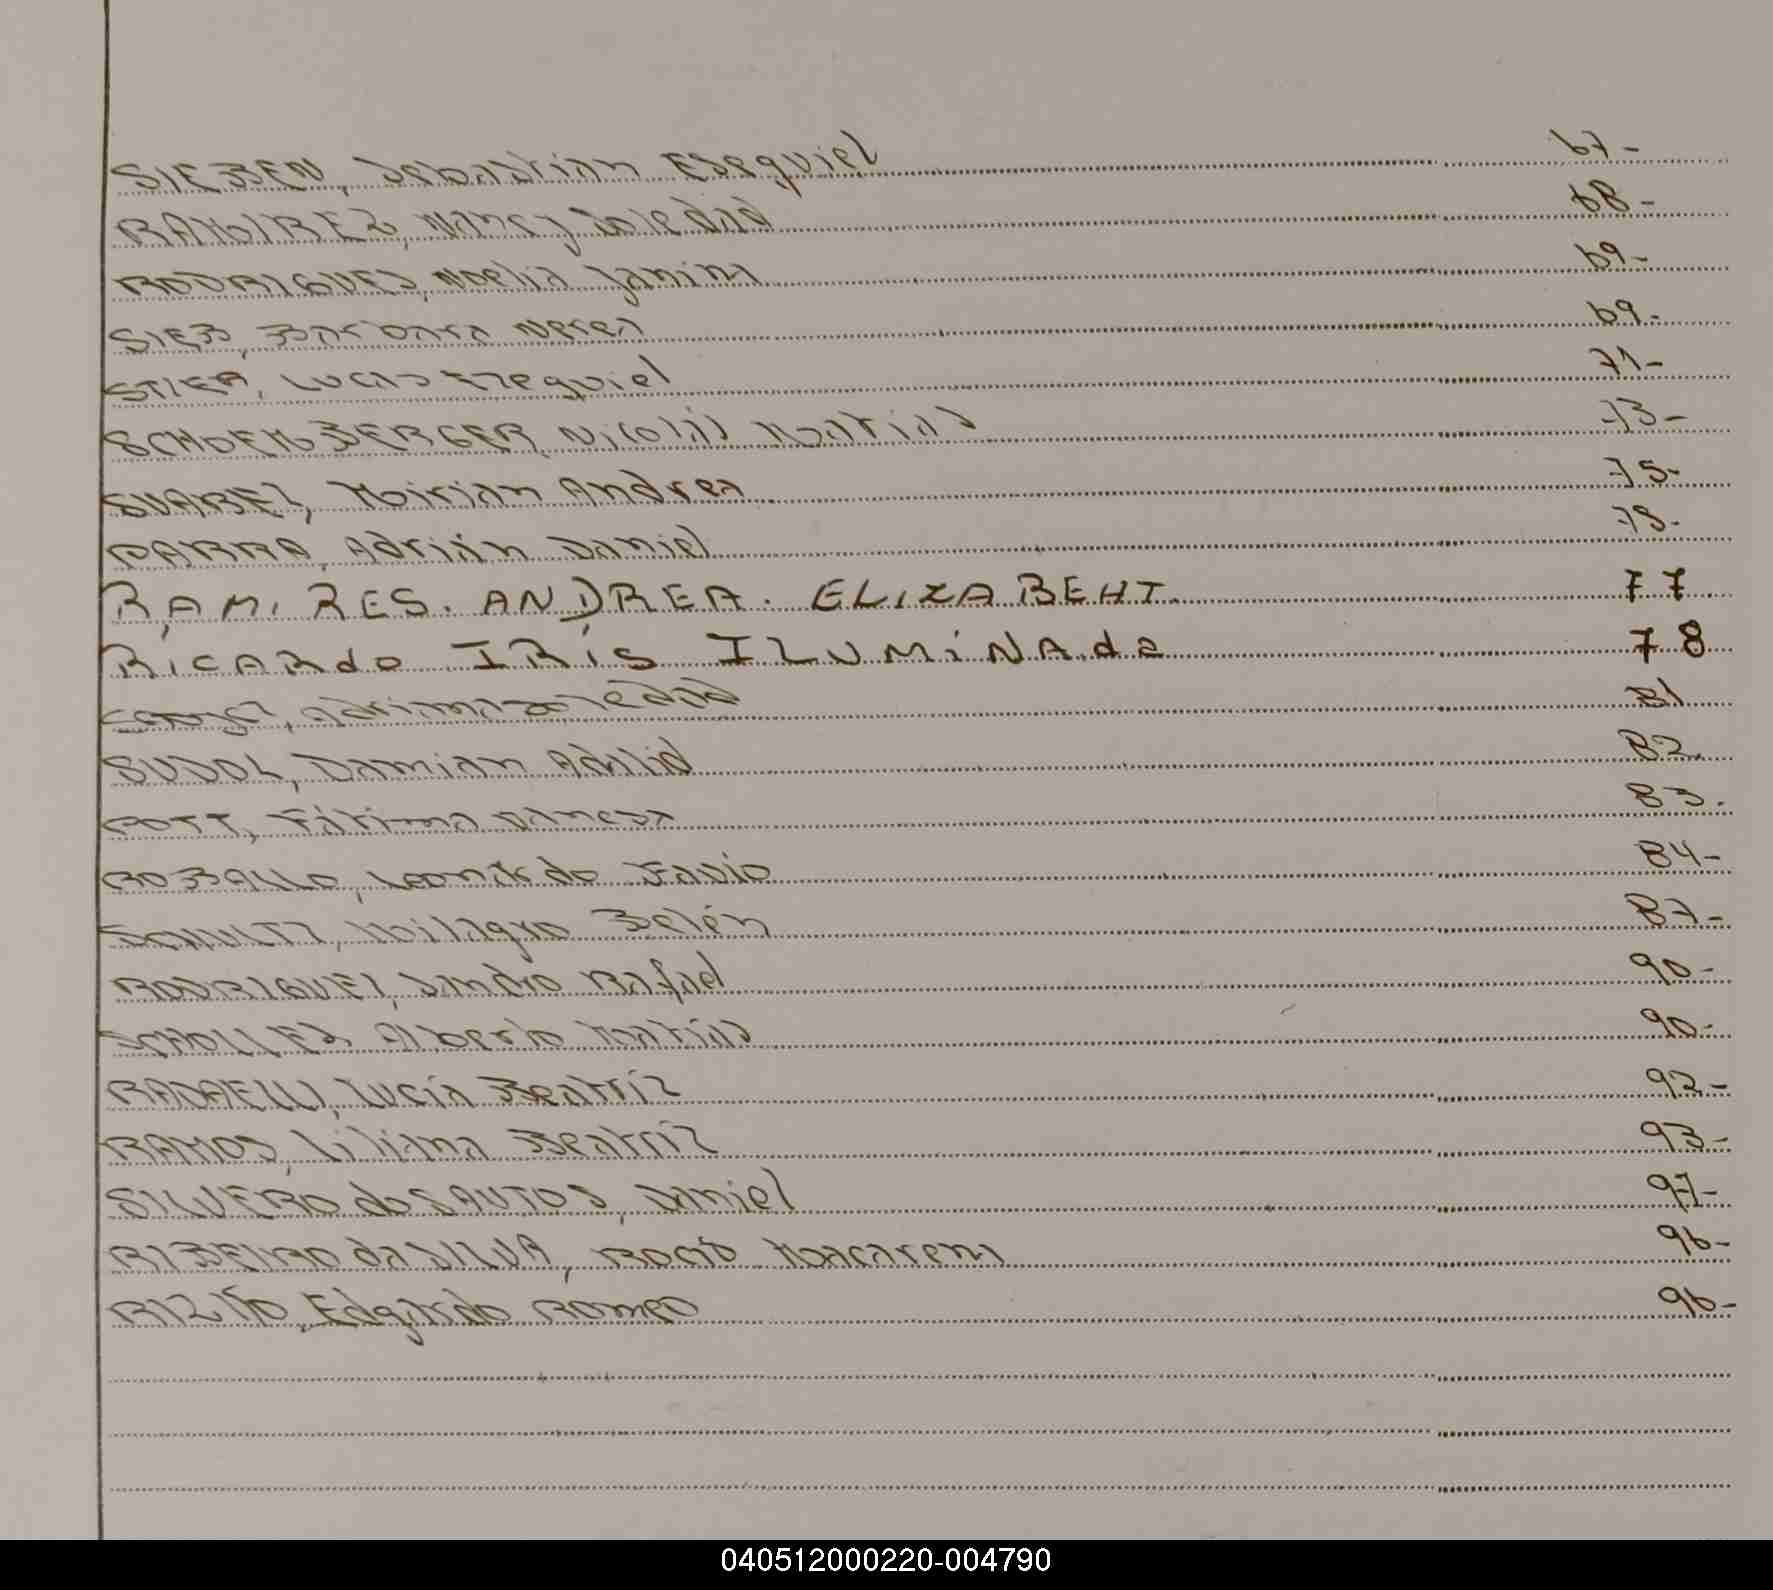 SIEBEN, Sebastián Esequiel 67-
RAMIREZ, Nancy Soledad 68-
RODRIGUES, Noelia Janina 69-
SIEB, Barbara Nerea 69-
STIER, Lucas Ezequiel 71-
SCHOEMBERGER Nicolás Matias 73-
SUAREZ, Mirian Andrea 75-
PARRA, Adrián Daniel 75-
RAMIRES. ANDREA. ELIZABEHT. 77
RICARdo IRiS ILUMiNAda 78
Adriana Soledad 81
SUDOL, Damian Adalid 82
POTT, Fátima Vanesa 83.
ROBALLO, Leonardo Favio 84-
SCHULTZ, Milagro Belén 87-
RODRIGUEZ, Sandro Rafael 90-
SCHOLLES Alberto Matías 90-
RADAELLI, Lucía Beatriz 92-
RAMOS, Liliana Beatriz 93-
SILVERO dos SANTOS, Daniel 97-
RIBEIRO da SILVA, Rocío Macarena 96-
RIZZO, Edgardo Romeo 96-
040512000220-004790